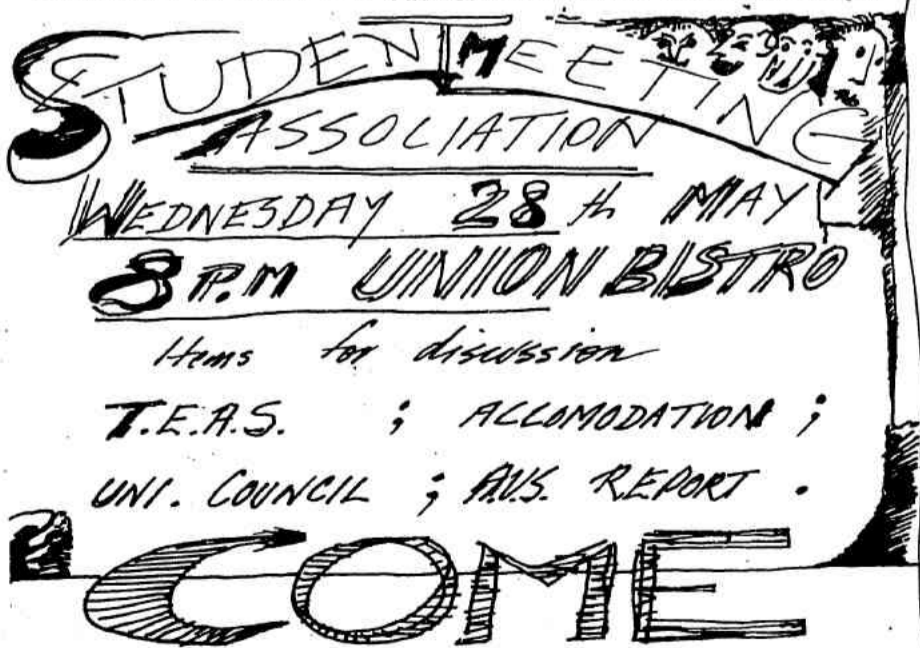 STUDENT MEETING
ASSOCIATION
WEDNESDAY 28th MAY
8 P.M UNION BISTRO
Items for discussion
T.E.A.S. ; ACCOMODATION ;
UNI. COUNCIL ; A.U.S. REPORT .
COME